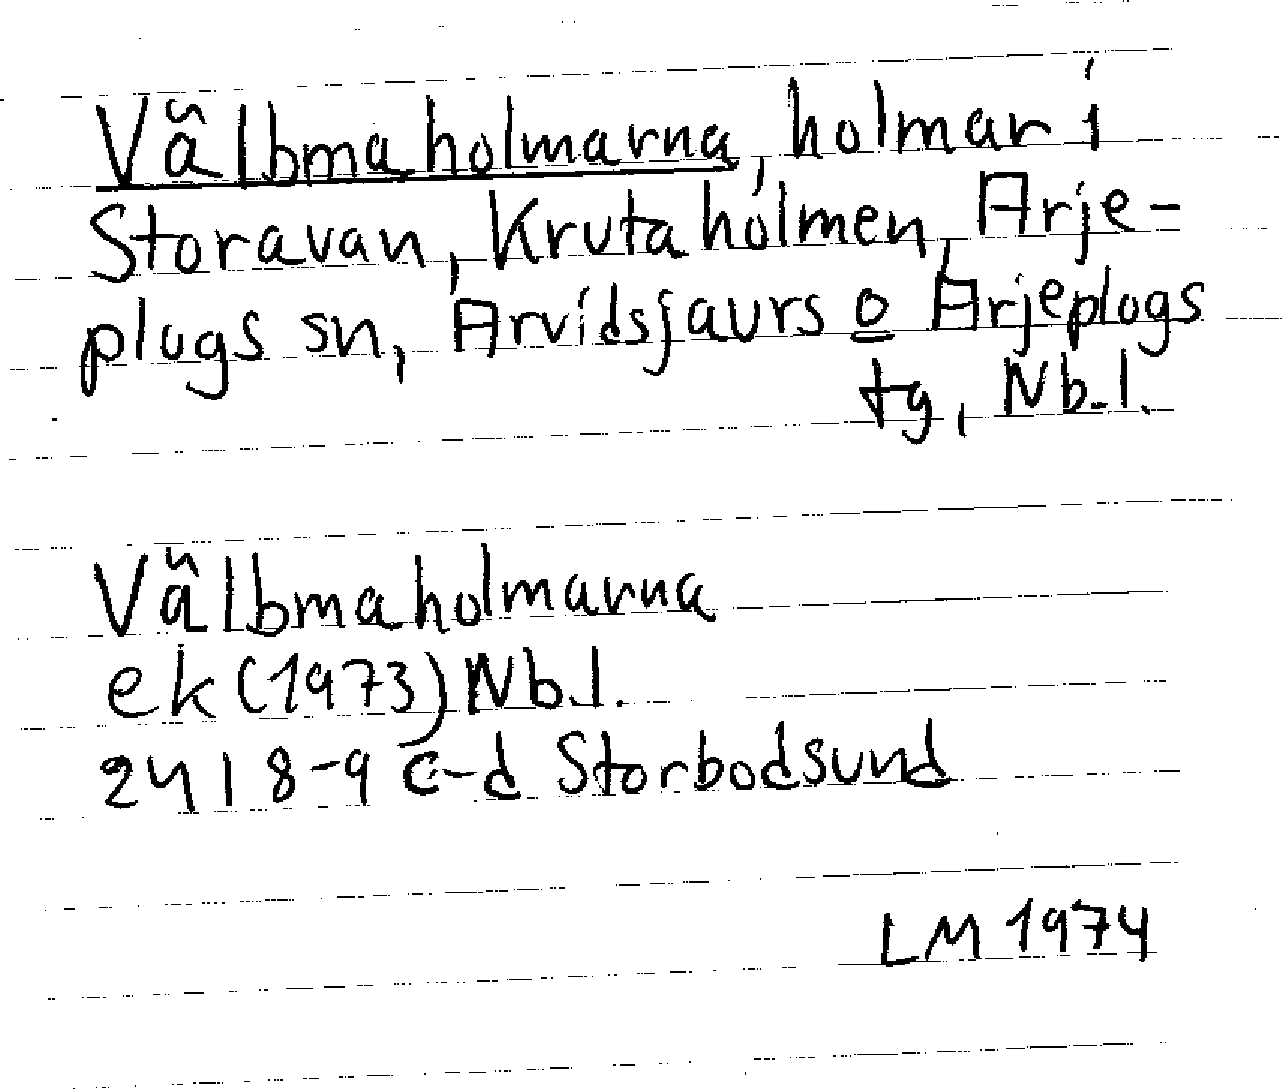 Välbmaholmarna, holmar i
Storavan, Krutaholmen, Arje-
plogs sn, Arvidsjaurs o Arjeplogs
tg, Nb.l.
Välbmaholmarna
ek (1973) Nb.l.
24 I 8-9 c-d Storbodsund
LM 1974